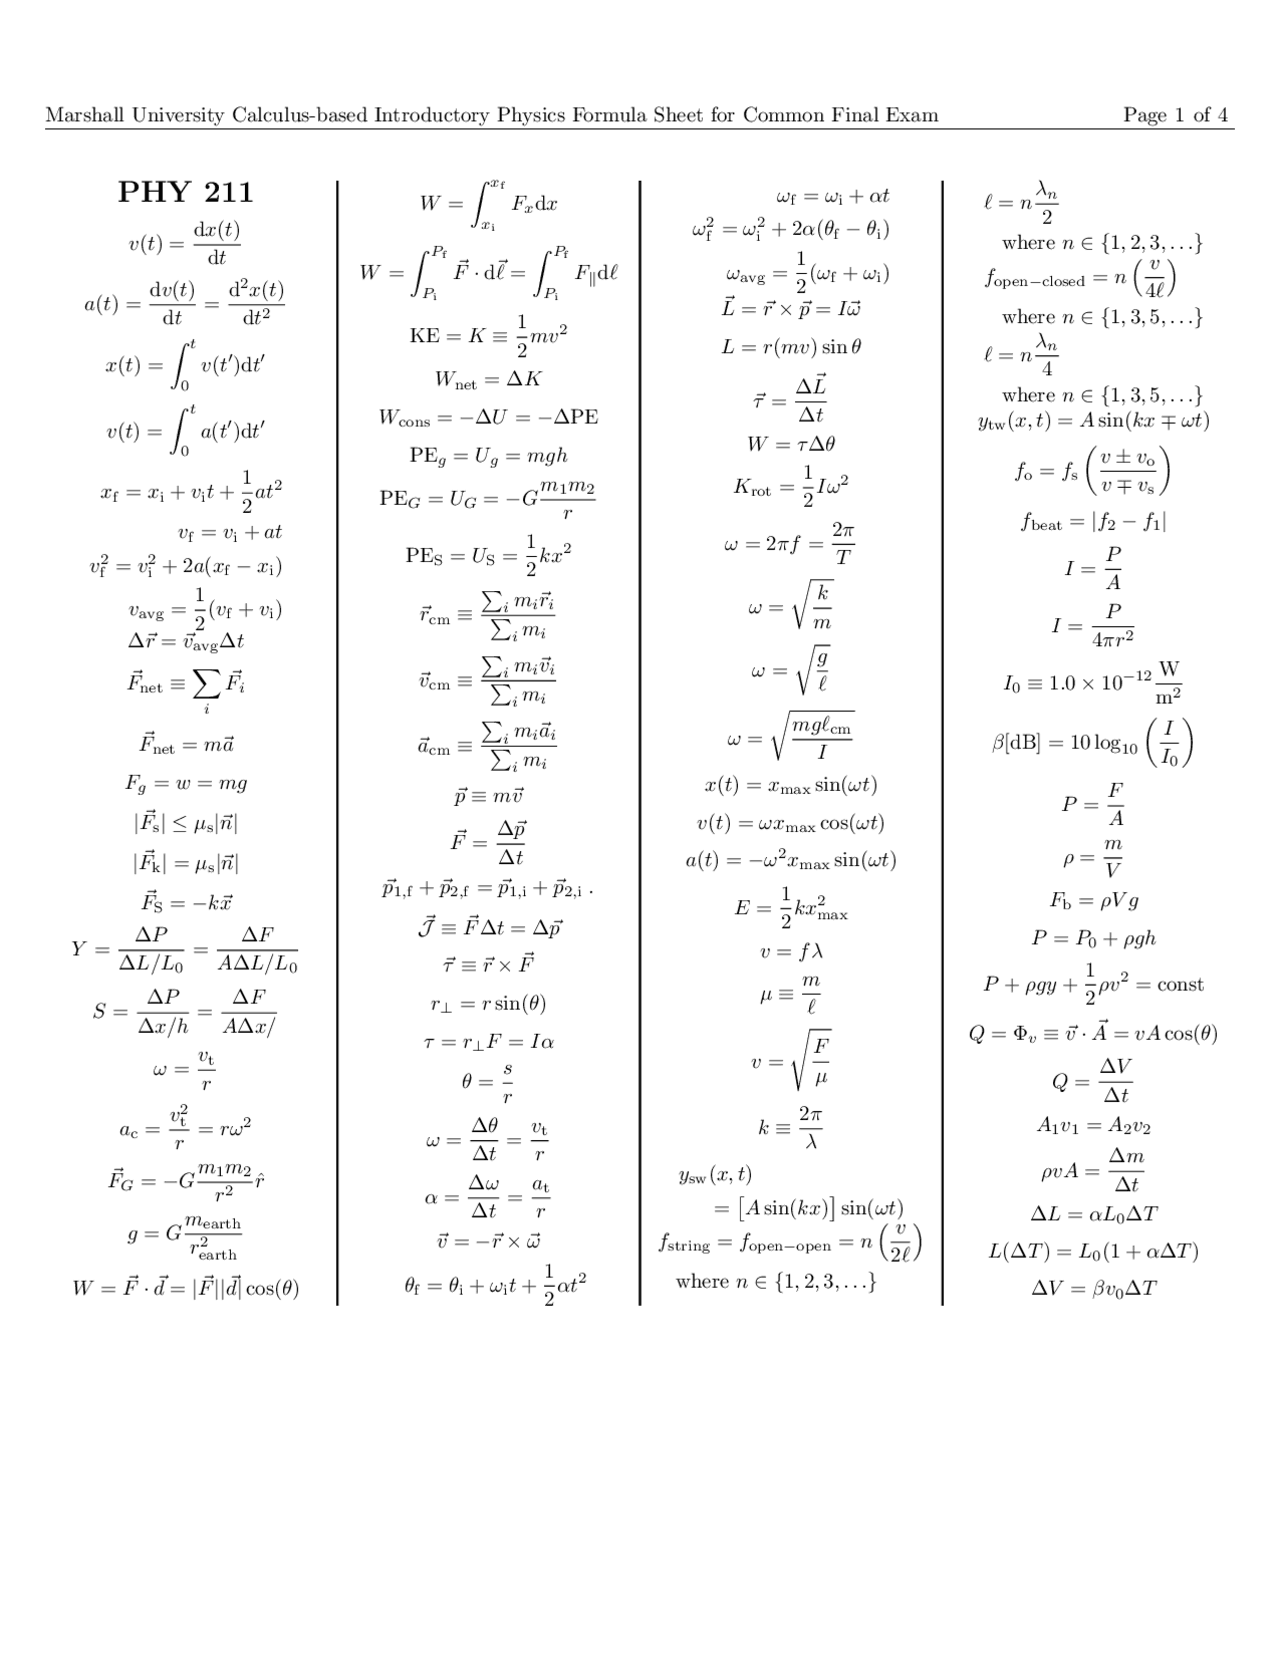 Marshall University Calculus-based Introductory Physics Formula Sheet for Common Final Exam Page 1 of 4
PHY 211
v(t) = dx(t)/dt
a(t) = dv(t)/dt = d²x(t)/dt²
x(t) = ∫₀ᵗ v(t′)dt′
v(t) = ∫₀ᵗ a(t′)dt′
x_f = x_i + v_i t + 1/2 at²
v_f = v_i + at
v_f² = v_i² + 2a(x_f − x_i)
v_avg = 1/2 (v_f + v_i)
Δr⃗ = v⃗_avg Δt
F⃗_net ≡ ∑_i F⃗_i
F⃗_net = ma⃗
F_g = w = mg
|F⃗_s| ≤ μ_s|n⃗|
|F⃗_k| = μ_s|n⃗|
F⃗_S = −kx⃗
Y = ΔP/(ΔL/L₀) = ΔF/(AΔL/L₀)
S = ΔP/(Δx/h) = ΔF/(AΔx/)
ω = v_t/r
a_c = v_t²/r = rω²
F⃗_G = −G m₁m₂/r² r̂
g = G m_earth/r²_earth
W = F⃗ · d⃗ = |F⃗||d⃗| cos(θ)
W = ∫_{x_i}^{x_f} F_x dx
W = ∫_{P_i}^{P_f} F⃗ · dℓ⃗ = ∫_{P_i}^{P_f} F_∥ dℓ
KE = K ≡ 1/2 mv²
W_net = ΔK
W_cons = −ΔU = −ΔPE
PE_g = U_g = mgh
PE_G = U_G = −G m₁m₂/r
PE_S = U_S = 1/2 kx²
r⃗_cm ≡ ∑_i m_i r⃗_i / ∑_i m_i
v⃗_cm ≡ ∑_i m_i v⃗_i / ∑_i m_i
a⃗_cm ≡ ∑_i m_i a⃗_i / ∑_i m_i
p⃗ ≡ mv⃗
F⃗ = Δp⃗/Δt
p⃗_1,f + p⃗_2,f = p⃗_1,i + p⃗_2,i .
𝒥⃗ ≡ F⃗Δt = Δp⃗
τ⃗ ≡ r⃗ × F⃗
r_⊥ = r sin(θ)
τ = r_⊥F = Iα
θ = s/r
ω = Δθ/Δt = v_t/r
α = Δω/Δt = a_t/r
v⃗ = −r⃗ × ω⃗
θ_f = θ_i + ω_i t + 1/2 αt²
ω_f = ω_i + αt
ω_f² = ω_i² + 2α(θ_f − θ_i)
ω_avg = 1/2 (ω_f + ω_i)
L⃗ = r⃗ × p⃗ = Iω⃗
L = r(mv) sin θ
τ⃗ = ΔL⃗/Δt
W = τΔθ
K_rot = 1/2 Iω²
ω = 2πf = 2π/T
ω = √(k/m)
ω = √(g/ℓ)
ω = √(mgℓ_cm/I)
x(t) = x_max sin(ωt)
v(t) = ωx_max cos(ωt)
a(t) = −ω²x_max sin(ωt)
E = 1/2 kx²_max
v = fλ
μ ≡ m/ℓ
v = √(F/μ)
k ≡ 2π/λ
y_sw(x, t)
= [A sin(kx)] sin(ωt)
f_string = f_open−open = n (v/2ℓ)
where n ∈ {1, 2, 3, . . .}
ℓ = n λ_n/2
where n ∈ {1, 2, 3, . . .}
f_open−closed = n (v/4ℓ)
where n ∈ {1, 3, 5, . . .}
ℓ = n λ_n/4
where n ∈ {1, 3, 5, . . .}
y_tw(x, t) = A sin(kx ∓ ωt)
f_o = f_s ((v ± v_o)/(v ∓ v_s))
f_beat = |f₂ − f₁|
I = P/A
I = P/4πr²
I₀ ≡ 1.0 × 10⁻¹² W/m²
β[dB] = 10 log₁₀ (I/I₀)
P = F/A
ρ = m/V
F_b = ρVg
P = P₀ + ρgh
P + ρgy + 1/2 ρv² = const
Q = Φ_v ≡ v⃗ · A⃗ = vA cos(θ)
Q = ΔV/Δt
A₁v₁ = A₂v₂
ρvA = Δm/Δt
ΔL = αL₀ΔT
L(ΔT) = L₀(1 + αΔT)
ΔV = βv₀ΔT